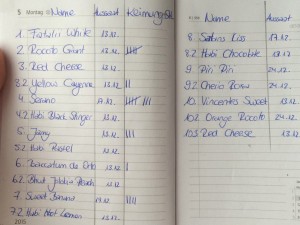 5 Montag Name Aussaat Keimung
1. Fatalii White 13.12
2. Rocoto Giant 13.12
3. Red Cheese 13.12.
8.2 Yellow Cayenne 13.12
4. Serano 17.12
4.2 Habi Black Stinger 13.12
5. Jamy 13.12
5.2 Habi Pastel 13.12.
6. 13.12
6.2 Bhut Jolokia Peach 13.12
7. Sweet Banana 13.12
7.2 Habi Hot Lemon 13.12
2015
Name Aussaat
8. Satans Kiss 17.12
8.2 Habi Chocolate 13.12
9. Piri Piri 24.12
9.2 Cherio Rosso 24.12
10. Vincentes Sweet 13.12
10.2 Orange Rocoto 24.12
10.3 Red Cheese 13.12